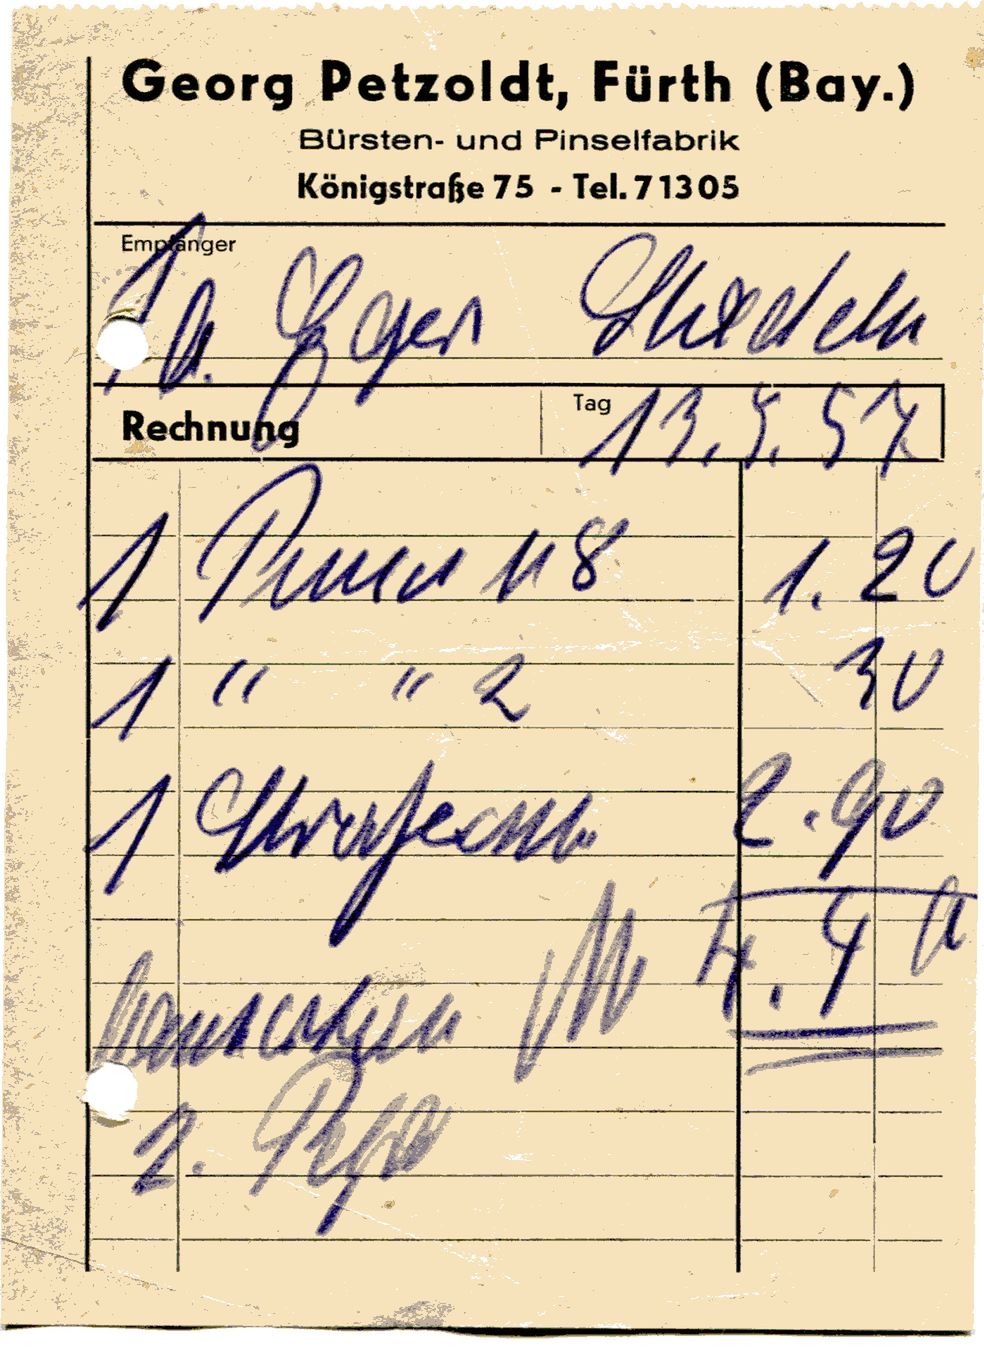 Georg Petzoldt, Fürth (Bay.)
Bürsten- und Pinselfabrik
Königstraße 75 - Tel. 71305
Empfänger
Fa. Eger
Rechnung Tag 13.5.57
1 Pinsel N 8 1.20
1 " " 2 30
1 2.90
M 4.40